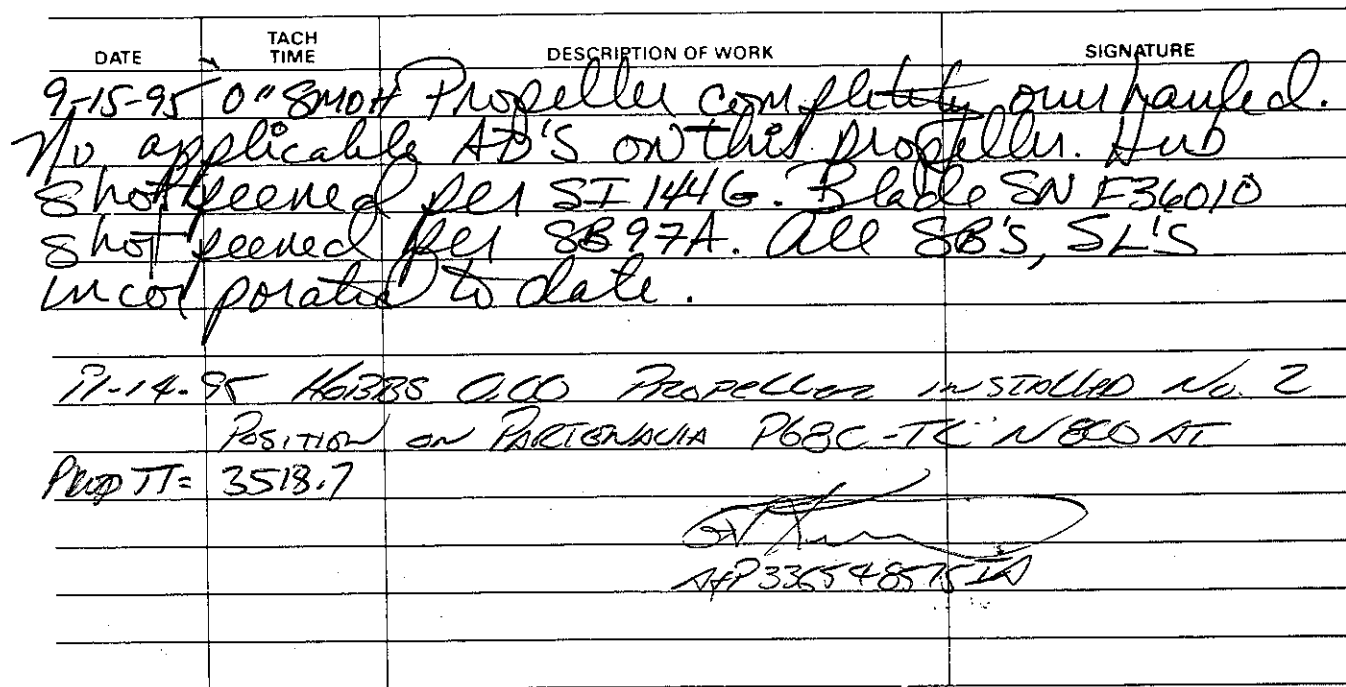 DATE TACH TIME DESCRIPTION OF WORK SIGNATURE
9-15-95 0" SMOH Propeller completely overhauled.
No applicable AD'S on this propeller. Hub
shot peened per SI 144G. Blade SN F36010
shot peened per SB97A. All SB'S, SL'S
incorporated to date.
11-14-95 HOBBS 0.00 PROPELLER INSTALLED No. 2
POSITION ON PARTENAVIA P68C-TC N800AT
PROP TT= 3518.7
A&P 336548575 IA